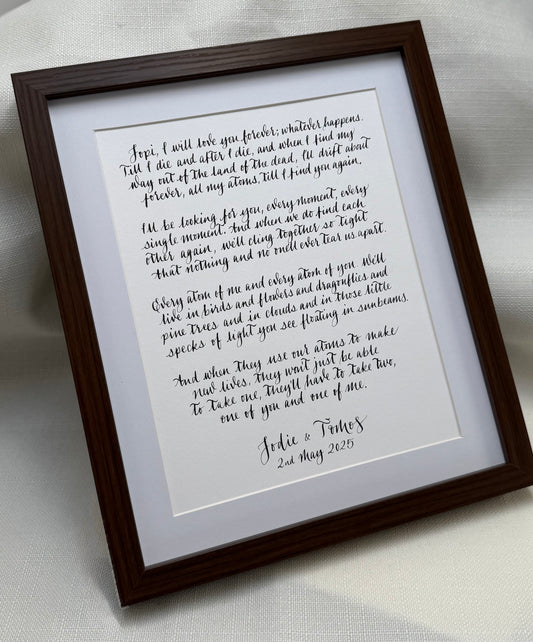 Jopi, I will love you forever; whatever happens.
Till I die and after I die, and when I find my
way out of the land of the dead, I'll drift about
forever, all my atoms, till I find you again.
I'll be looking for you, every moment, every
single moment. And when we do find each
other again, we'll cling together so tight
that nothing and no one'll ever tear us apart.
Every atom of me and every atom of you We'll
live in birds and flowers and dragonflies and
pine trees and in clouds and in those little
specks of light you see floating in sunbeams.
And when they use our atoms to make
new lives, they wont just be able
to take one, they'll have to take two,
one of you and one of me.
Jodie & Tomos
2nd May 2025